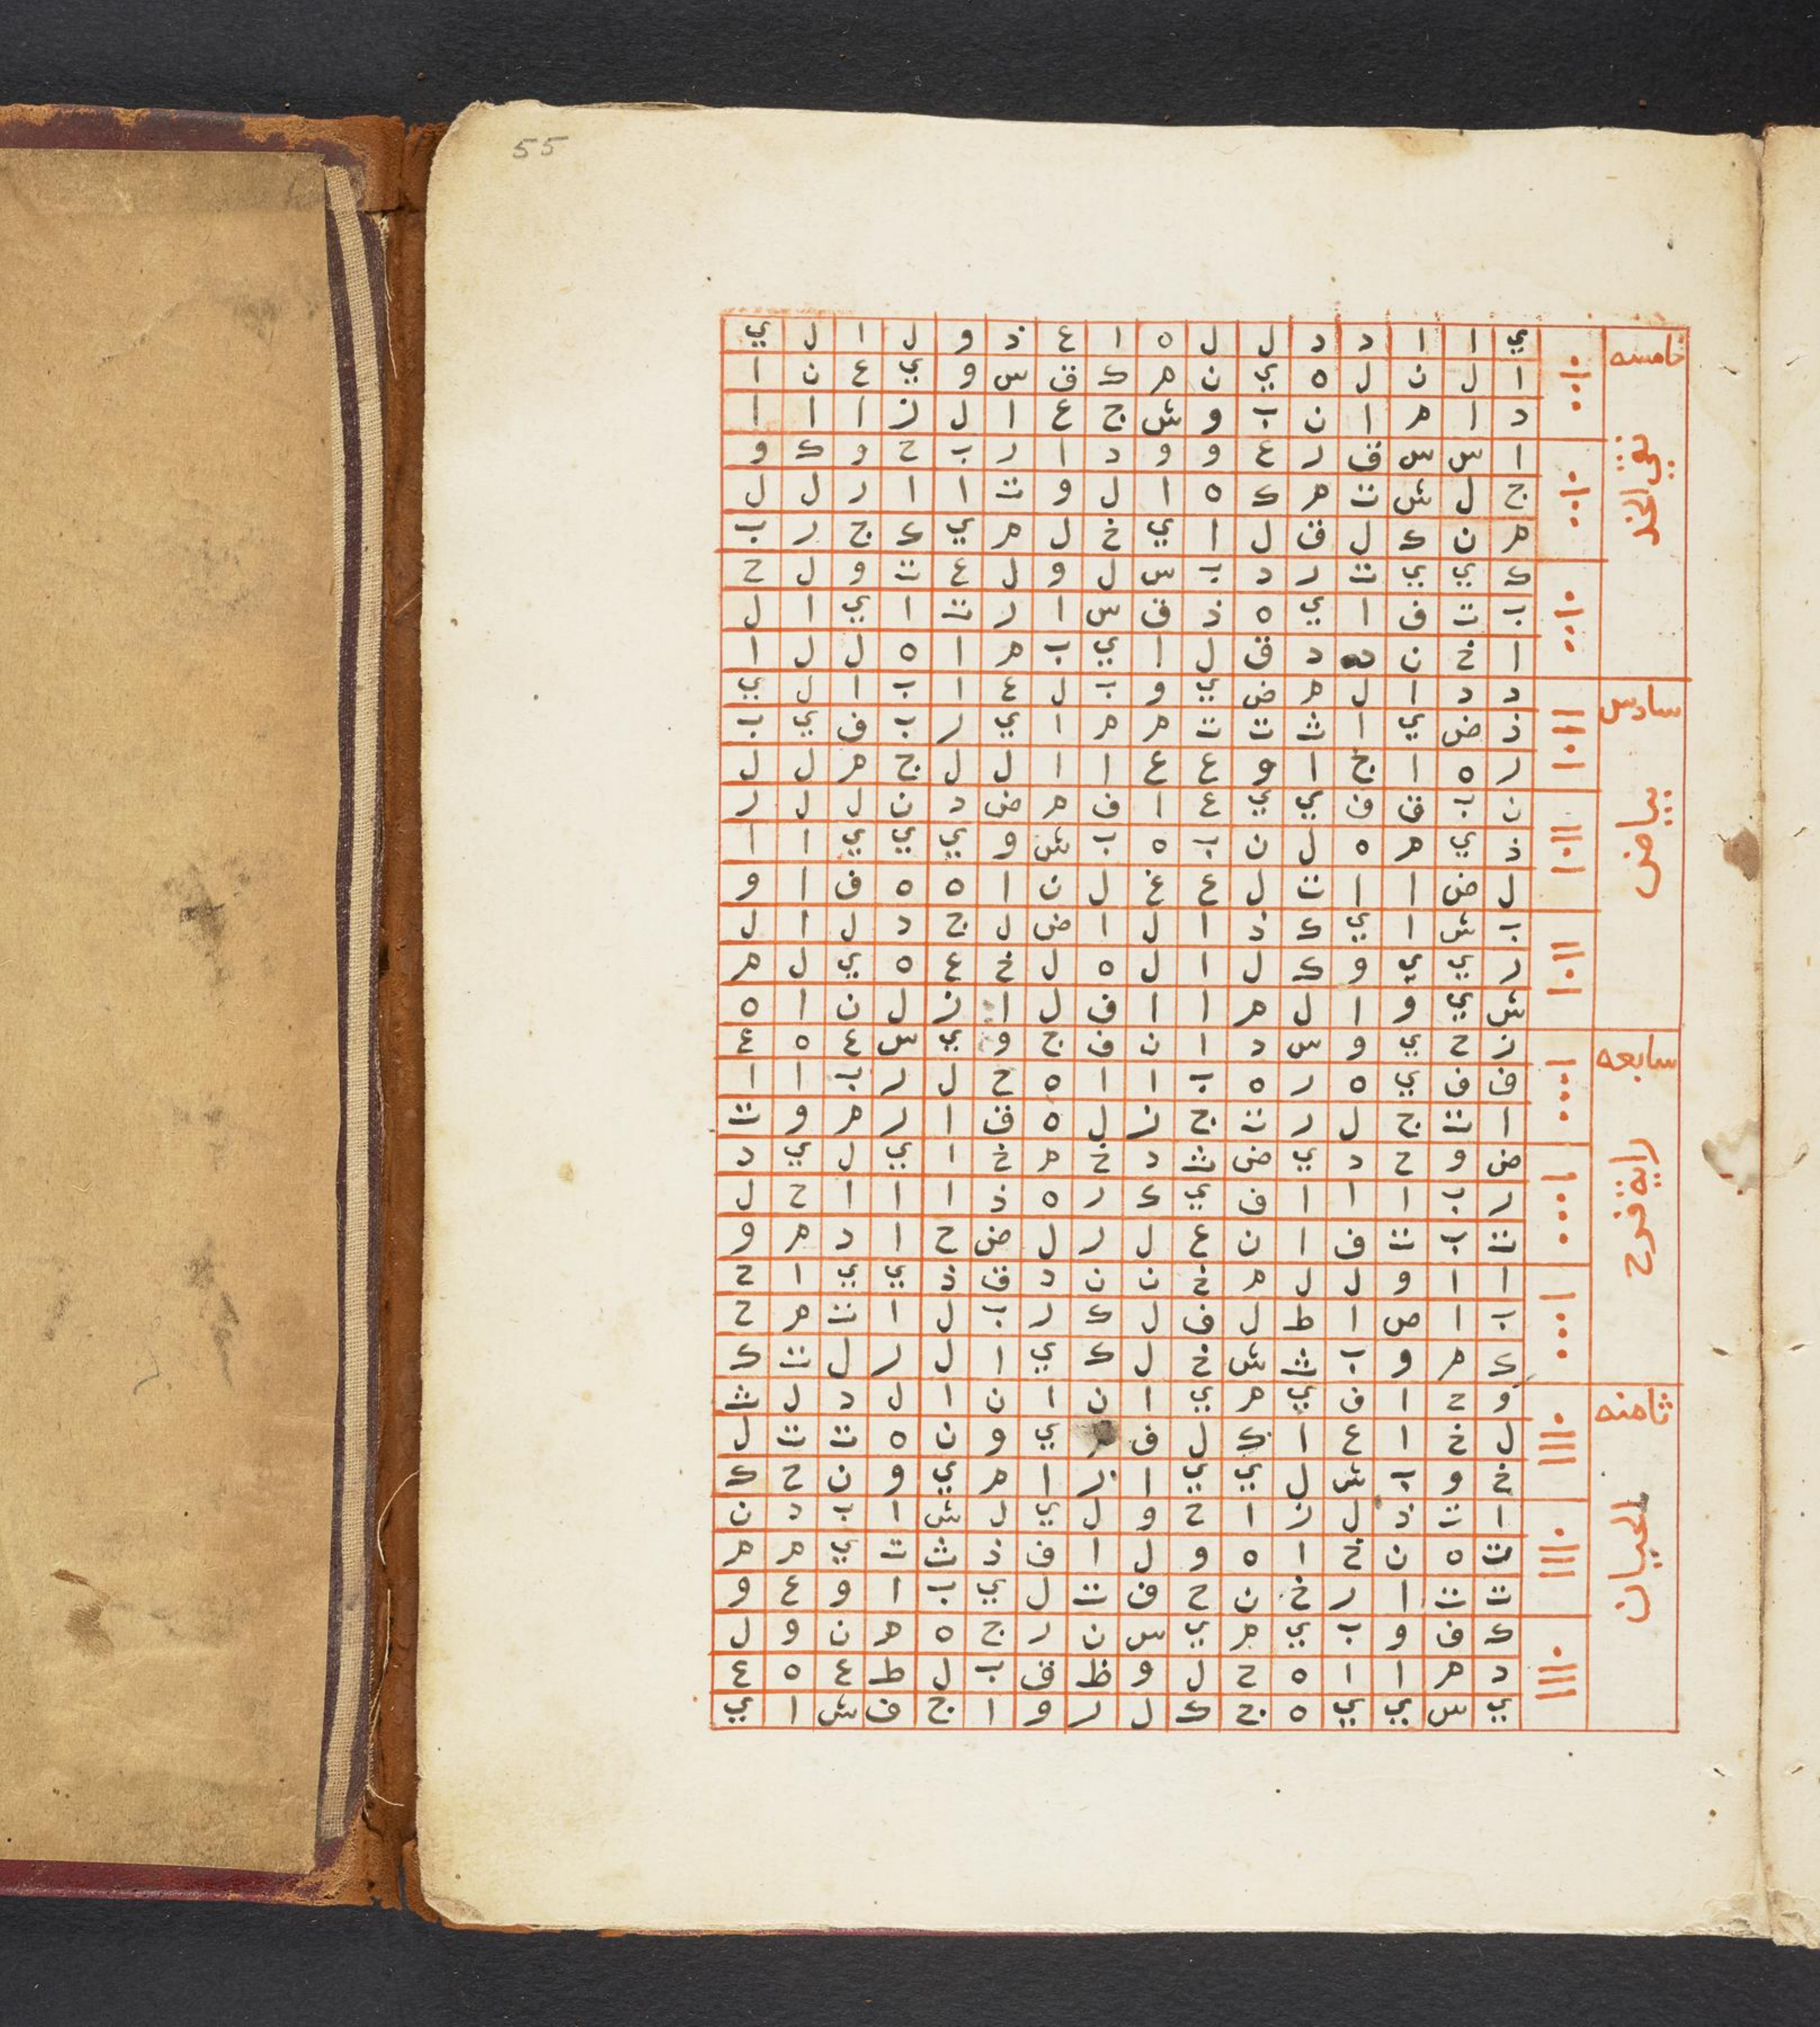 55
خامسه
نقي الخد
ي ا ا د د ل ل ه ا ع ذ و ل ا ل ي
ا ل ن ل ه ي ن م ك ق س و ي ع ن ا
د ا م ا ن ب و ش ج ع ا ل ز ا ا ا
ا س س ق ر ع و و د ا ر ب ح و ك و
ج ل ش ت م ك ه ا ل و ت ا ا ر ل ل
م ن ك ل ق ل ا ي خ ل م ي ك ج ر ب
ك ي ي ت ر د ب س ل و ل ع ت و ل ح
ب ت ف ا ي ه ذ ق س ا ر ت ا ي ا ل
ا خ ن د ق ل ا ي ب م ا ه ل ل ا
سادس
بياض
د د ا ل م ض ي و ب ل ع ا ب ا ل ي
ذ ض ي ا ث ت ت م م ا ي ر ب ف ي ب
ر ه ا ج ا و ع ع ا ا ل ل ج م ل ل
ن ب ق ف ي ي ع ا ف م ض د ن ل ل ر
ذ ي م ه ل ن ب ه ب ش و ي ي ي ا ا
ل ض ا ا ت ل ع غ ل ن ا ه ه ف ا و
ب ش ا ي ك ذ ا ل ا ض ل ج د ل ا ل
ر ي ي و ك ل ا ل ه ل خ ع ه ي ل م
ش ي و ا ل م ا ا ف ل ا ز ل ن ا ه
سابعه
راية فرح
ز ح ي و س د ا ن ف ج و ي س ع ه ع
ف ف ي ه ر ه ب ا ا ه ح ل ر ب ا ا
ا ت ج ل ر ت ج ز ل ه ق ا ر م و ت
ض و ح د ي ض ث د خ م خ ا ي ل ي د
ر ب ا ا ا ف ي ك ر ه ذ ا ا ا ح ل
ت ب ت ف ا ن ع ل ر ل ض ح ا د م و
ا ا و ل ل م خ ن ن د ق ذ ي ي ا ح
ب ا ص ا ط ل ف ل ك ر ب ل ا ت م ح
ك م و ب ث ش خ ل ك ي ا ل ر ل ت ك
ثامنه
لحيان
و ح ا ف ي م ي ا ن ا ن ا ل د ل ث
ل خ ا ع ا ك ل ف ي و ن ه ت ت ل
خ و ب ش ل ي ي ا ر ا م ي و ن ح ك
ا ت ذ ل ز ا ح و ل ي ل ش ا ب د ن
ت ه ن خ ا ه و ل ا ف ذ ث ت ي م م
ت ت ا ر خ ن ح ف ت ل ي ب ا و ع و
ك ف و ب ي م ي س ن ر ج ه م ن و ل
د م ا ا ه ح ل و ظ ق ب ل ط ع ه ع
ي س ي ي ه ج ك ل ر و ا ج ف ش ا ي